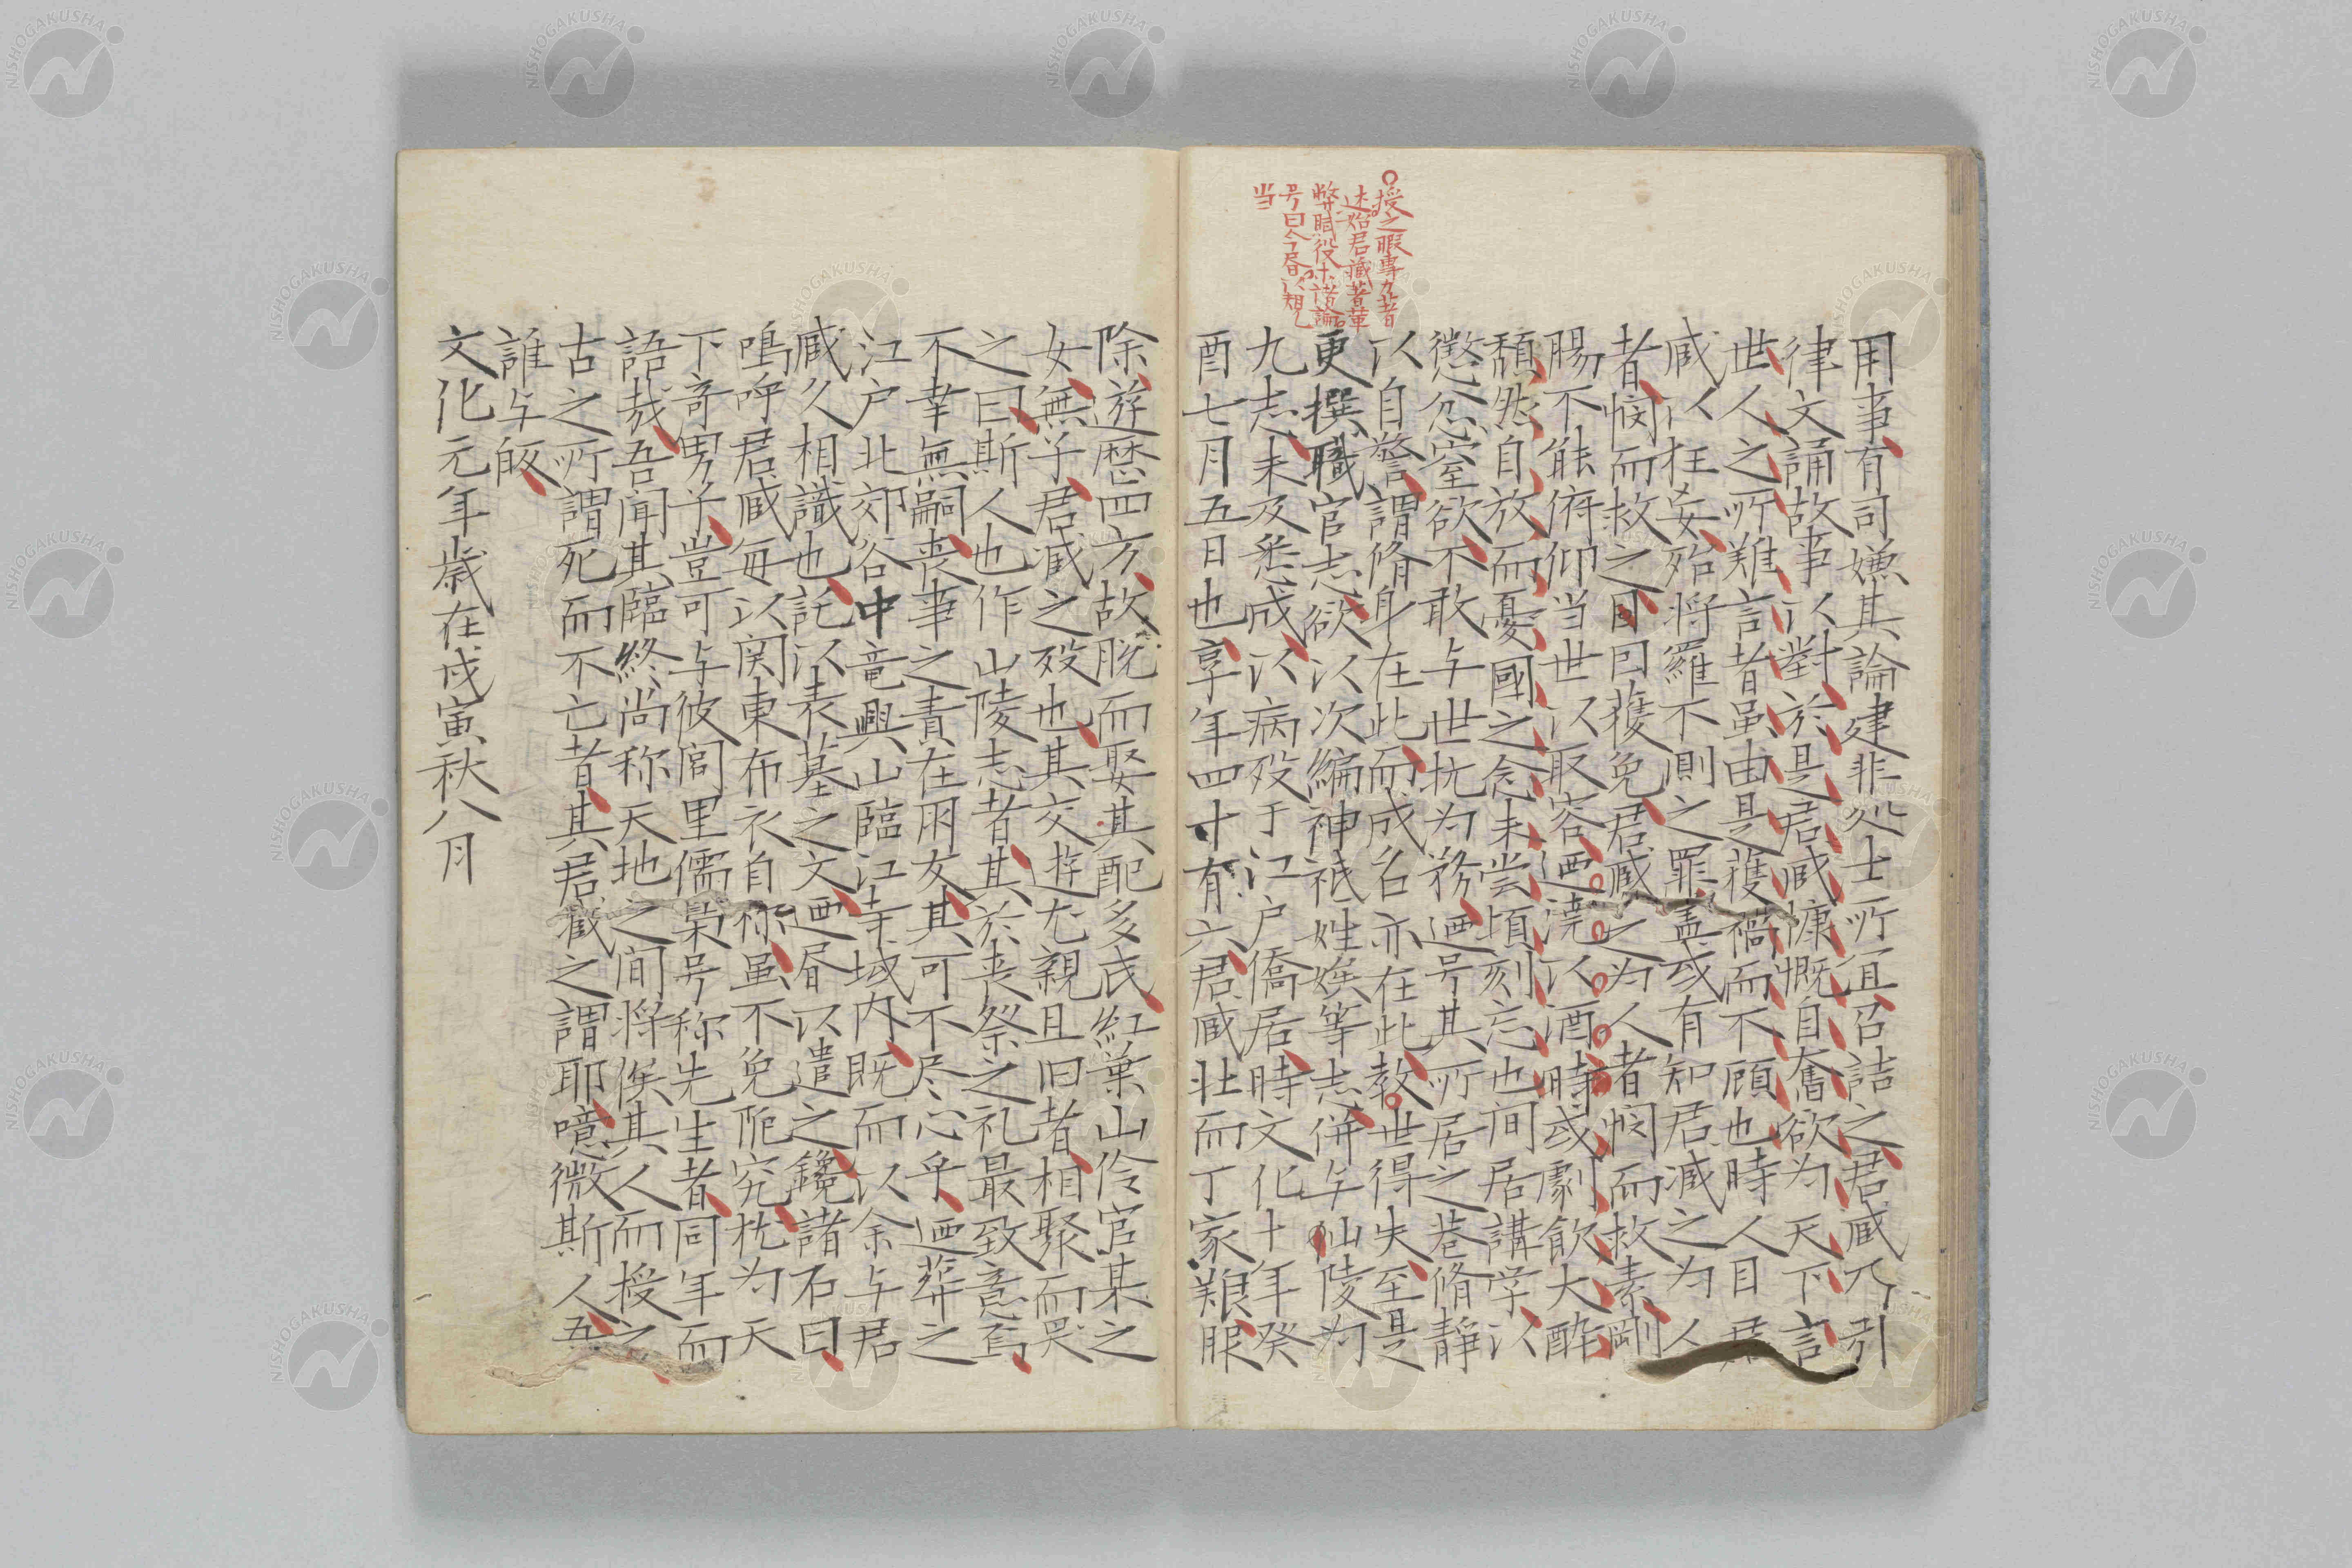 授之暇専力著
述始君蔵著革
弊賦役
号曰今昼以規
当
用事有司嫌其論建非処士所宜召詰之君蔵乃引
律文誦故事以對於是君蔵慷慨自奮欲为天下言
世人之所難言者虽由是獲禍而不顧也時人目君
蔵以狂妄殆将羅不測之罪盖或有知君蔵之为人
者憫而救之因曰獲免君蔵之为人者憫而救素剛
腸不能俯仰当世以取容迺澆以酒時或劇飲大酔
頽然自放而憂國之念未尝頃刻忘也间居講学以
懲忿窒欲不敢与世抗为務迺号其所居之巷脩静
以自警謂脩身在此而成名亦在此教世得失至是
更撰職官志欲以次編神祇姓族等志併与仙陵为
九志未及悉成以病歿于江户僑居時文化十年癸
酉七月五日也享年四十有六君蔵壮而丁家艱服
除遊歴四方故脱而娶其配多氏紅葉山伶官某之
女無子君蔵之歿也其交遊尤親且旧者相聚而哭
之曰斯人也作山陵志者其於丧祭之礼最致意焉
不幸無嗣丧事之責在朋友其可不尽心乎迺葬之
江户北郊谷中竜興山臨江寺域内既而以余与君
蔵久相識也託以表墓之文迺昼以遣之鑱諸石曰
嗚呼君蔵毎以関東布衣自称虽不免阨究抗为天
下奇男子豈可与彼閭里儒梟号称先生者同年而
語哉吾闻其臨終尚称天地之间将俟其人而授之
古之所謂死而不亡者其君蔵之謂耶噫微斯人吾
誰与皈
文化元年歳在戊寅秋八月